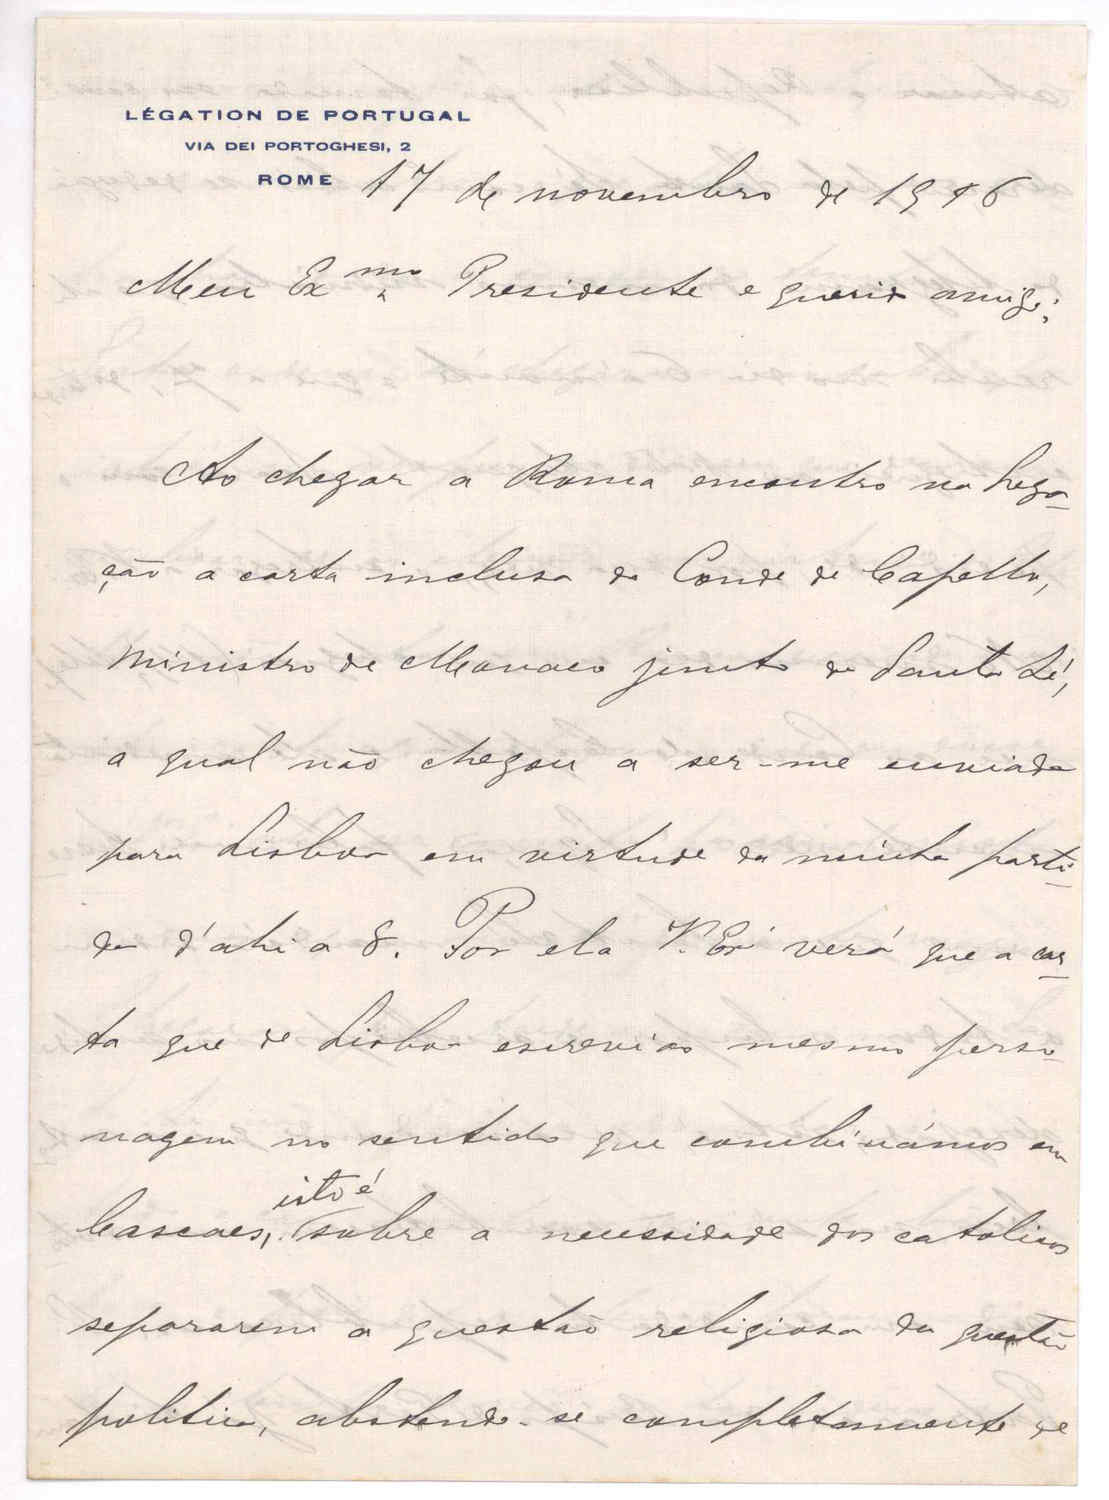 LÉGATION DE PORTUGAL
VIA DEI PORTOGHESI, 2
ROME
17 de novembro de 1916
Meu Exmo Presidente e querido amigo:
Ao chegar a Roma encontro na Lega-
ção a carta inclusa do Conde de Capello,
ministro de Monaco junto da Santa Sé,
a qual não chegou a ser-me enviada
para Lisboa em virtude da minha parti-
da d'ahi a 8. Por ela V. Exª verá que a car-
ta que de Lisboa escrevi ao mesmo perso-
nagem no sentido que combinámos em
Cascaes, isto é sobre a necessidade dos catolicos
separarem a questão religiosa da questão
politica, abstendo-se completamente de